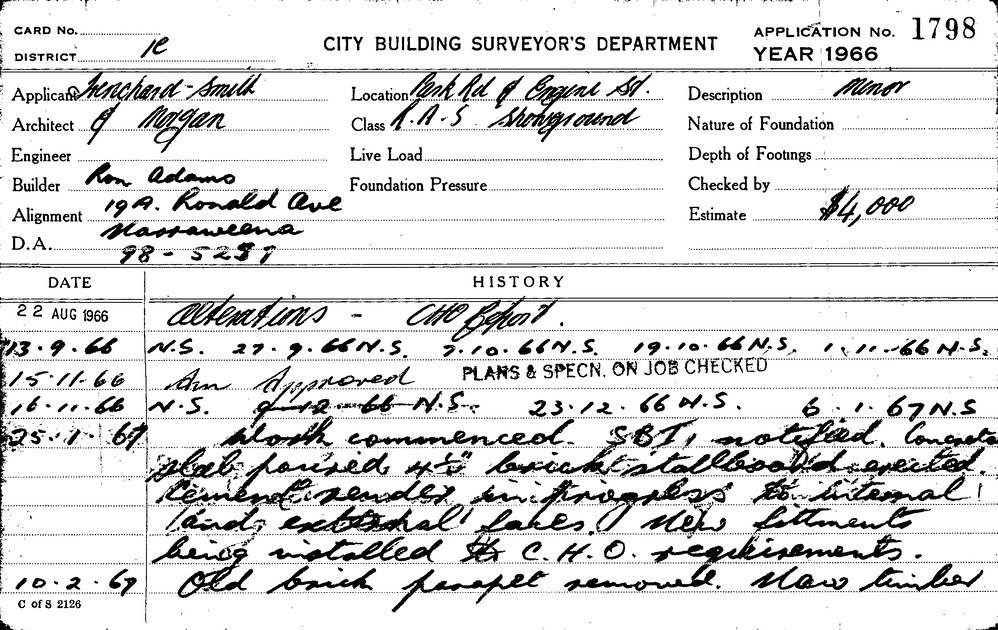 CARD No.
DISTRICT 1C
CITY BUILDING SURVEYOR'S DEPARTMENT
APPLICATION No. 1798
YEAR 1966
Applicant Trenchard-Smith
Architect & Morgan
Engineer
Builder Ron Adams
Alignment 19A. Ronald Ave
D.A. Narraweena
98-5231
Location Park Rd & Engine St.
Class R.A.S Showground
Live Load
Foundation Pressure
Description Minor
Nature of Foundation
Depth of Footings
Checked by
Estimate $4,000
DATE HISTORY
22 AUG 1966 Alterations - CHO Report.
13.9.66 N.S. 27.9.66 N.S. 7.10.66 N.S. 19.10.66 N.S. 1.11.66 N.S.
15.11.66 Am Approved PLANS & SPECN. ON JOB CHECKED
16.11.66 N.S. 9-12-66 N.S. 23.12.66 N.S. 6.1.67 N.S
25.1.67 Work commenced. SBI, notified. Concrete
slab poured, 4½" brick stallboard erected.
Cement render in progress to internal
and external faces. New fittments
being installed to C.H.O. requirements.
10.2.67 Old brick parapet removed. New timber
C of S 2126